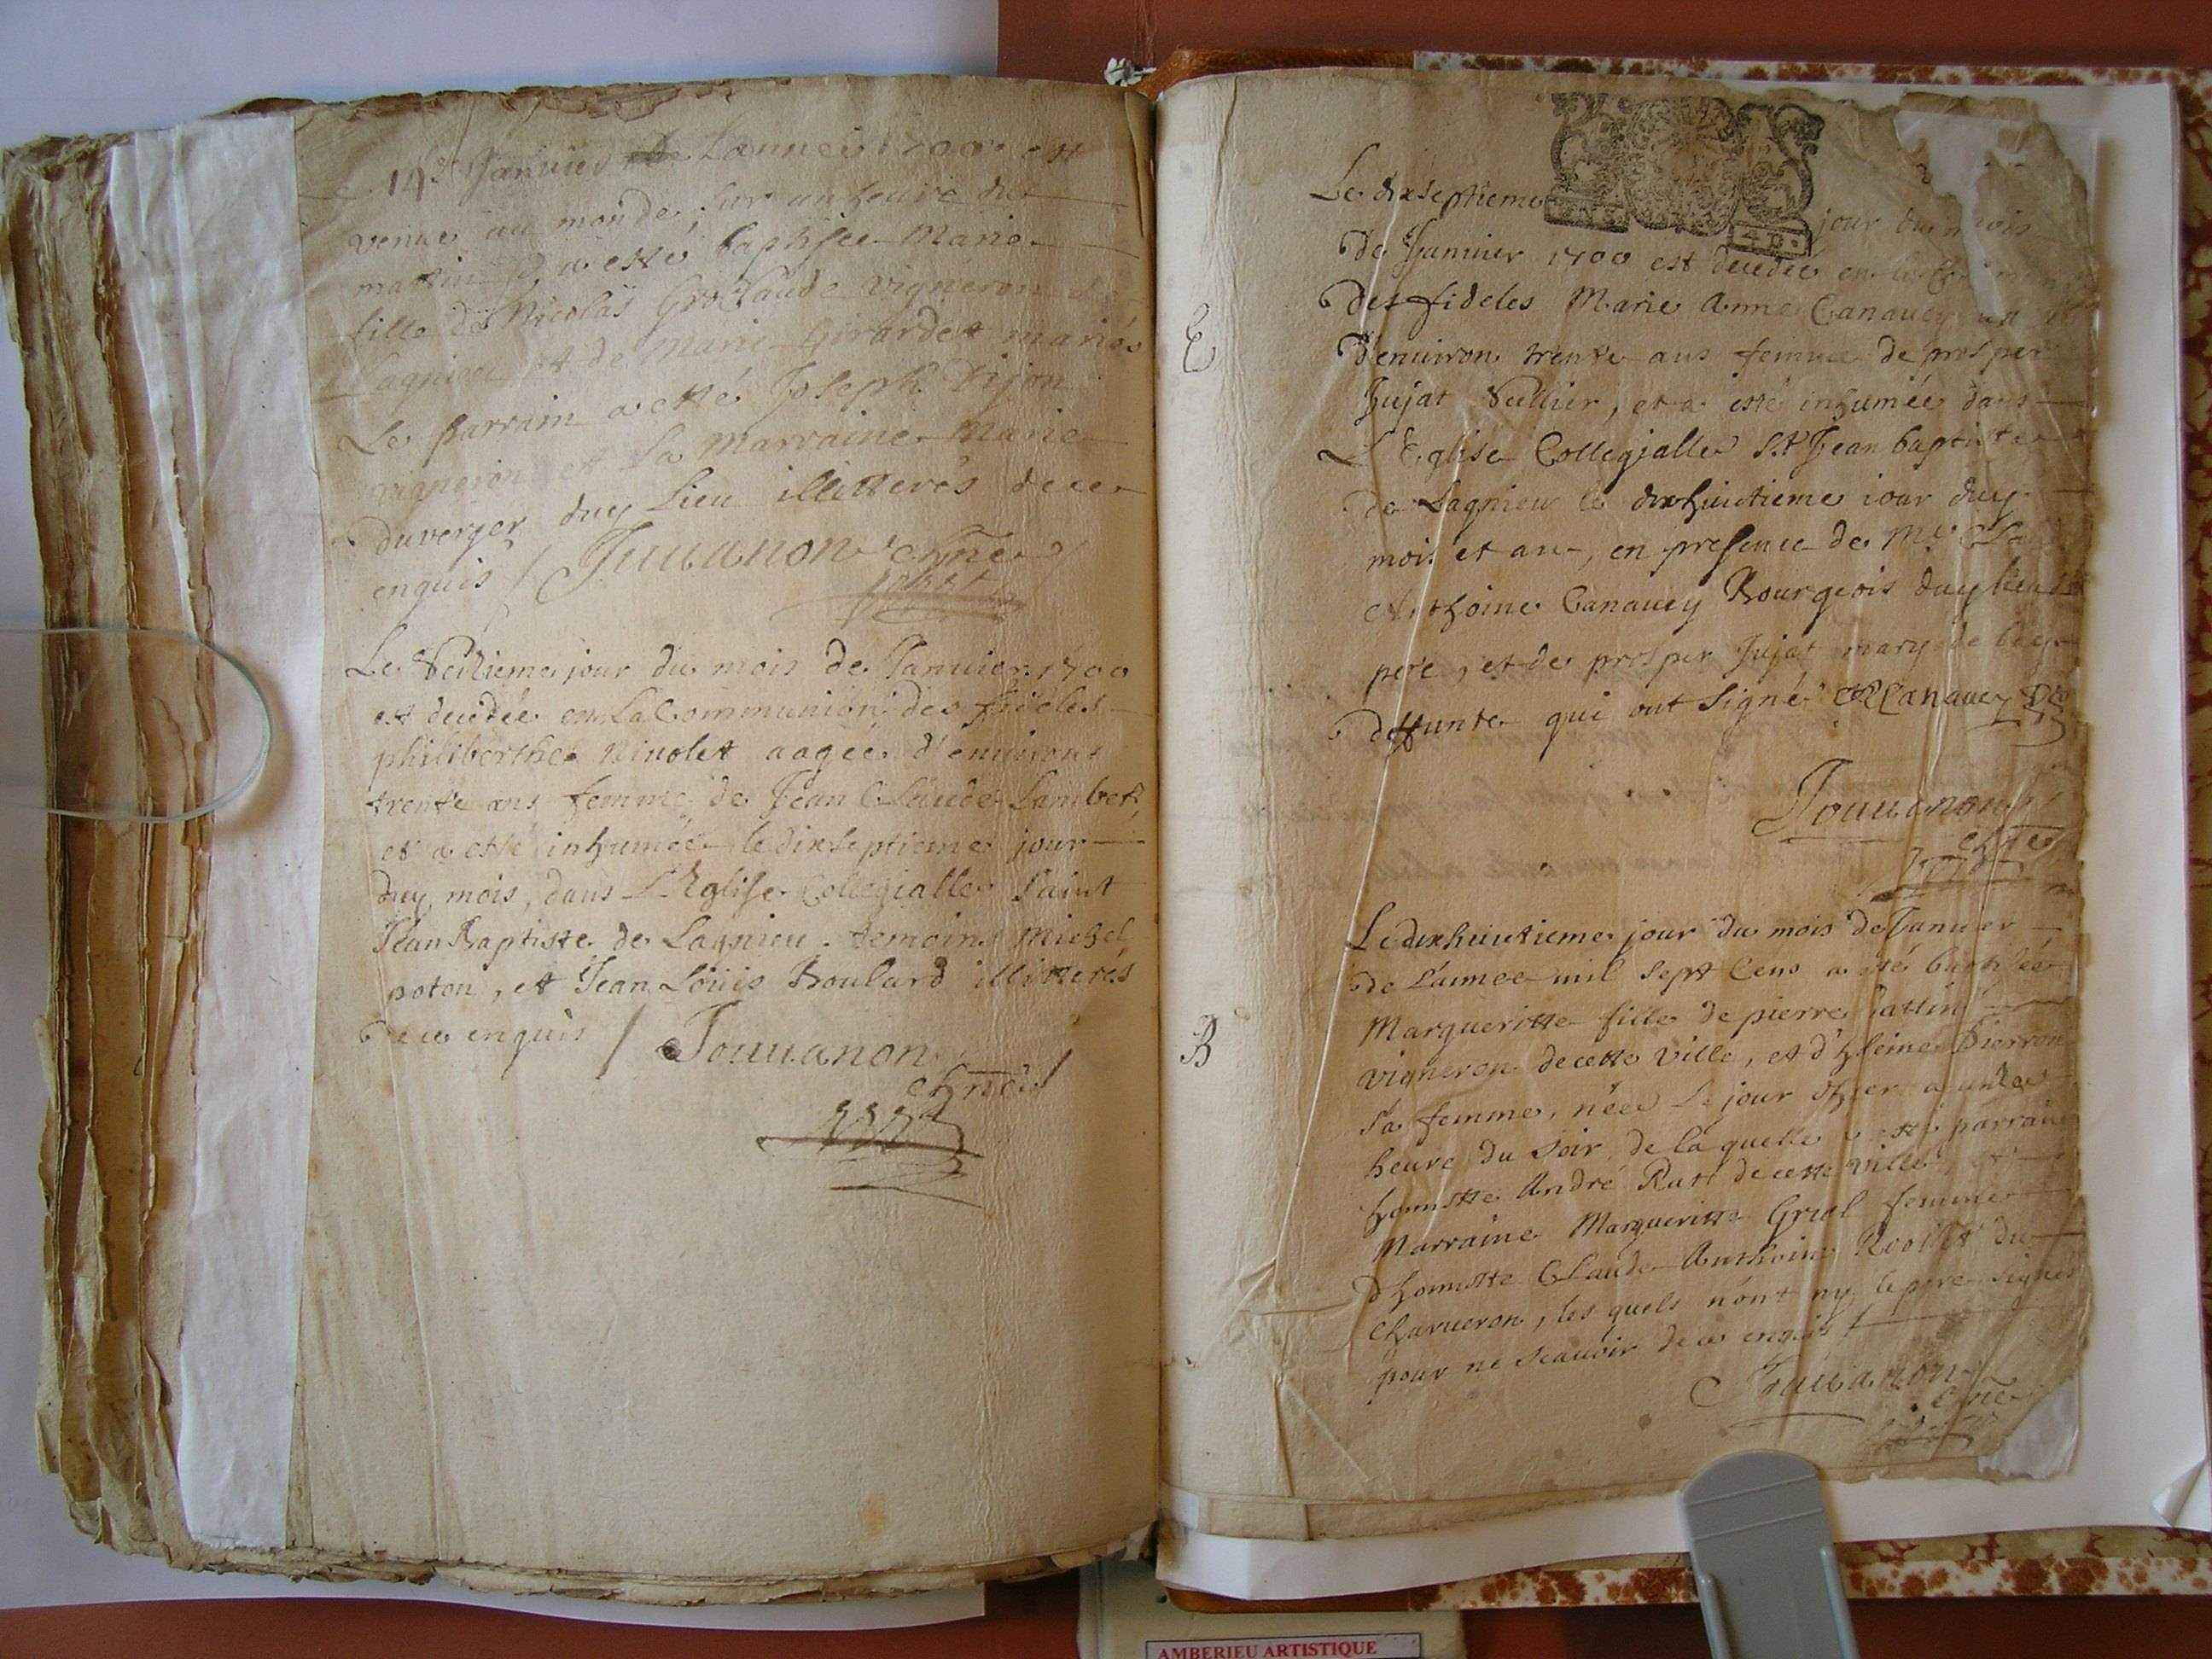 Le 14e Janvier Lannee 1700 est
venue au monde sur un heure du
mattin & a esté baptisée Marie
fille de Nicolas Groclaude vigneron de
Lagnieu et de Marie Girardet mariés
Le parrain a esté Joseph Dijon
vigneron et la Marraine Marie
duverger duy Lieu illitterés de ce
enquis / Jouuanon chne
Le Seizieme jour du mois de Januier 1700
est decedée en La Communion des fideles
philiberthe Ninolet aagée d'environs
trente ans femme de Jean Claude Lambert
et a esté inhumée le dixseptieme jour
duy mois, dans L'Eglise Collegialle Saint
Jean Baptiste de Lagnieu. temoins Michel
poton, et Jean Loüis Boulard illitterés
de ce enquis / Jouuanon
chne
Le dixseptieme jour du mois
40.
De Januier 1700 est decedée en la
E
Des fideles Marie Anne Canauey
D'enuiron trente ans femme de prosper
Jujat Sellier, et a esté inhumée dans
L'Eglise Collegialle St Jean baptiste
de Lagnieu le dixhuictieme iour duy
mois et an, en presence de Mr
Anthoine Canauey Bourgeois duy lieu
pere, et de prosper Jujat mary de lad
deffunte qui ont signé Canauey
Jouuanon
chne
Le dixhuictieme jour du mois de Januier
de L'année mil sept Cens a esté baptisée
B
Margueritte fille de pierre Pattin
vigneron de cette ville, et d'heleine Pierron
sa femme, née Le jour d'hier a
heure du soir, de laquelle a esté parrain
honneste André Rust de cette ville, et
Marraine Margueritte Grial femme
d'honneste Claude Anthoine Reollet du
Charueron, les quels n'ont ny le pere signés
pour ne scauoir de ce enquis /
Jouuanon
chne
AMBERIEU ARTISTIQUE